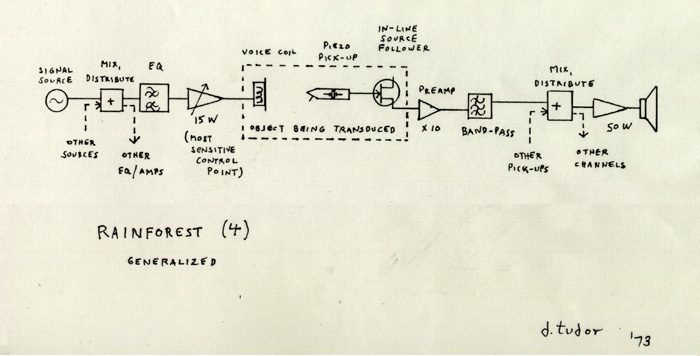 SIGNAL
SOURCE
MIX,
DISTRIBUTE
EQ
+
OTHER
SOURCES
OTHER
EQ/AMPS
15 W
(MOST
SENSITIVE
CONTROL
POINT)
VOICE COIL
PIEZO
PICK-UP
IN-LINE
SOURCE
FOLLOWER
OBJECT BEING TRANSDUCED
PREAMP
X 10
BAND-PASS
MIX,
DISTRIBUTE
+
OTHER
PICK-UPS
OTHER
CHANNELS
50 W
RAINFOREST (4)
GENERALIZED
d. tudor '73